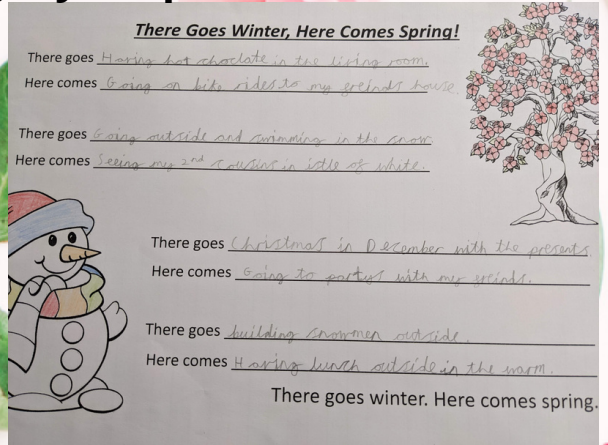 There Goes Winter, Here Comes Spring!
There goes Having hot choclate in the living room.
Here comes Going on bike rides to my greinds house.
There goes Going outside and swimming in the snow
Here comes Seeing my 2nd cousins in istle of white.
There goes Christmas in December with the presents
Here comes Going to partys with my greinds.
There goes building snowmen outside.
Here comes Having lunch outside in the warm.
There goes winter. Here comes spring.